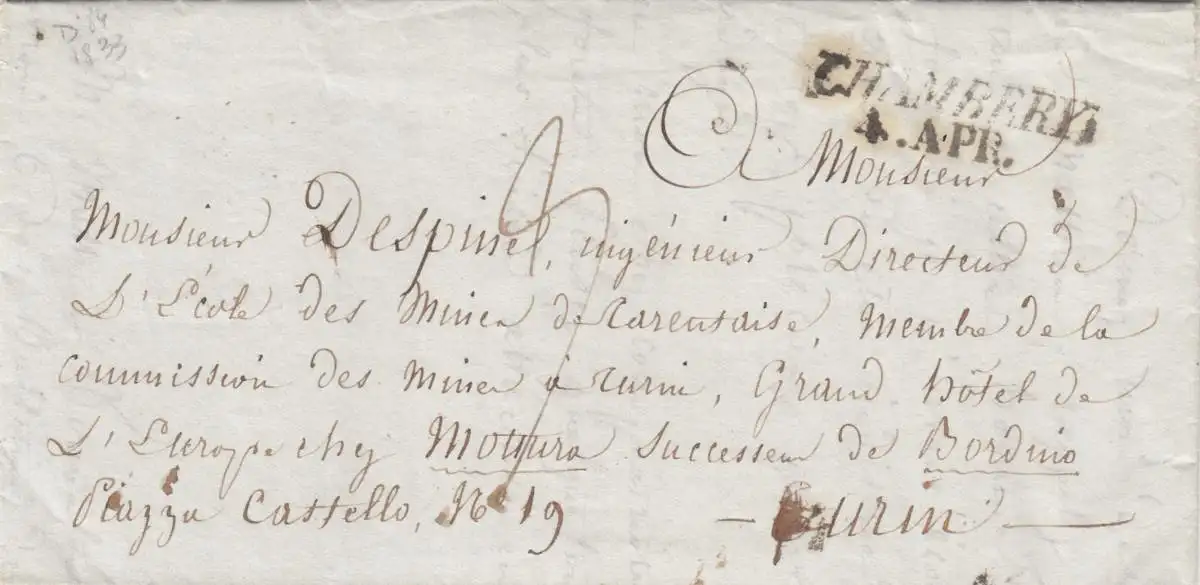 1833
CHAMBERY
4. APR.
Monsieur
Monsieur Despine, ingénieur Directeur de
L'École des Mines de Tarentaise, Membre de la
commission des Mines à Turin, Grand hôtel de
L'Europe chez Mottura Successeur de Bordino
Piazza Castello, No 19 — Turin —